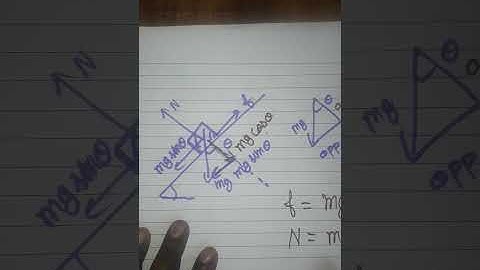 N
f
mg sinθ
θ
mg cosθ
mg
mg sinθ
θ
mg
opp
f = mg
N = m
N
mg sinθ
θ
mg
opp